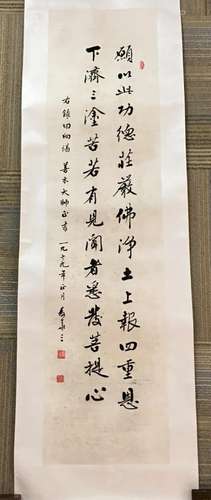 願以此功德莊嚴佛淨土上報四重恩
下濟三塗苦若有見聞者悉發菩提心
右錄回向偈 善禾大師正書 一九七九年正月